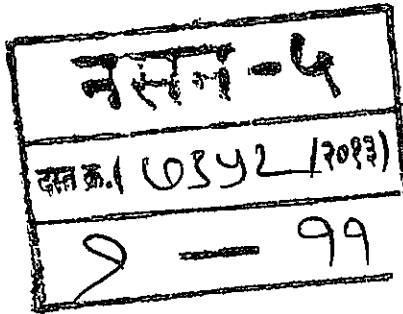 नसन-५
दस्त क्र.( ७३५२ /२०१३)
१ — ११